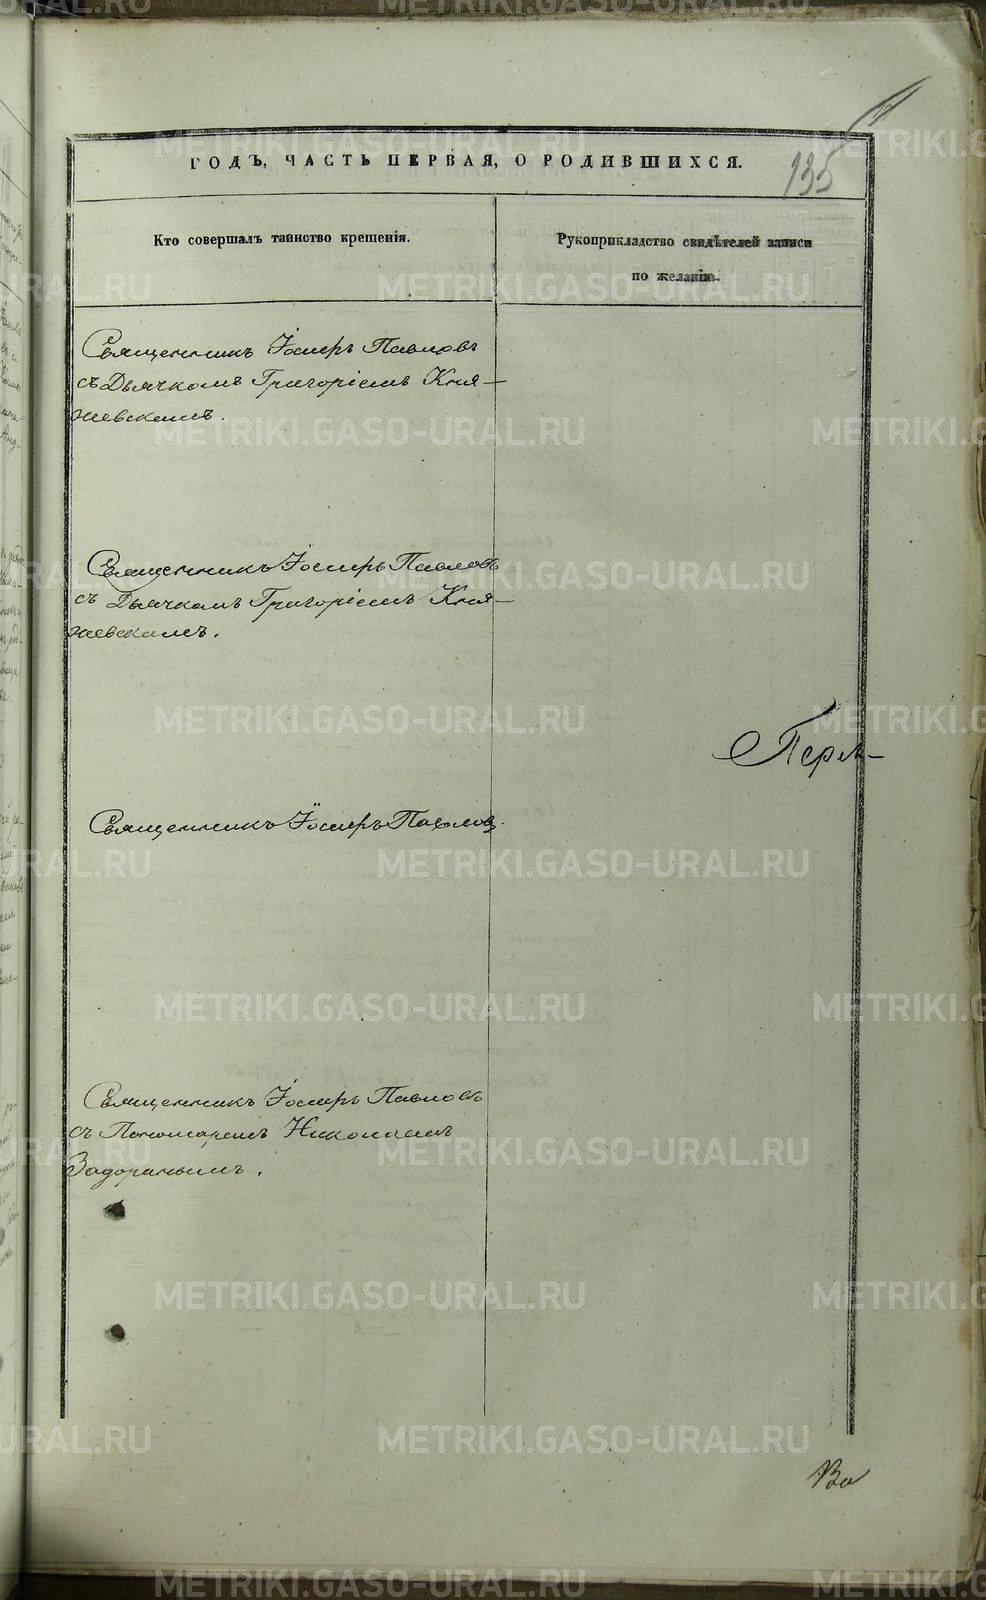 ГОДЪ, ЧАСТЬ ПЕРВАЯ, О РОДИВШИХСЯ.
135
Кто совершалъ таинство крещенія.
Рукоприкладство свидѣтелей записи
по желанію.
Священникъ Іосифъ Павловъ
съ Дьячкомъ Григоріемъ Кня-
жевскимъ.
Священникъ Іосифъ Павловъ
съ Дьячкомъ Григоріемъ Кня-
жевскимъ.
Священникъ Іосифъ Павловъ.
Священникъ Іосифъ Павловъ
съ Пономаремъ Николаемъ
Задоринымъ.
METRIKI.GASO-URAL.RU